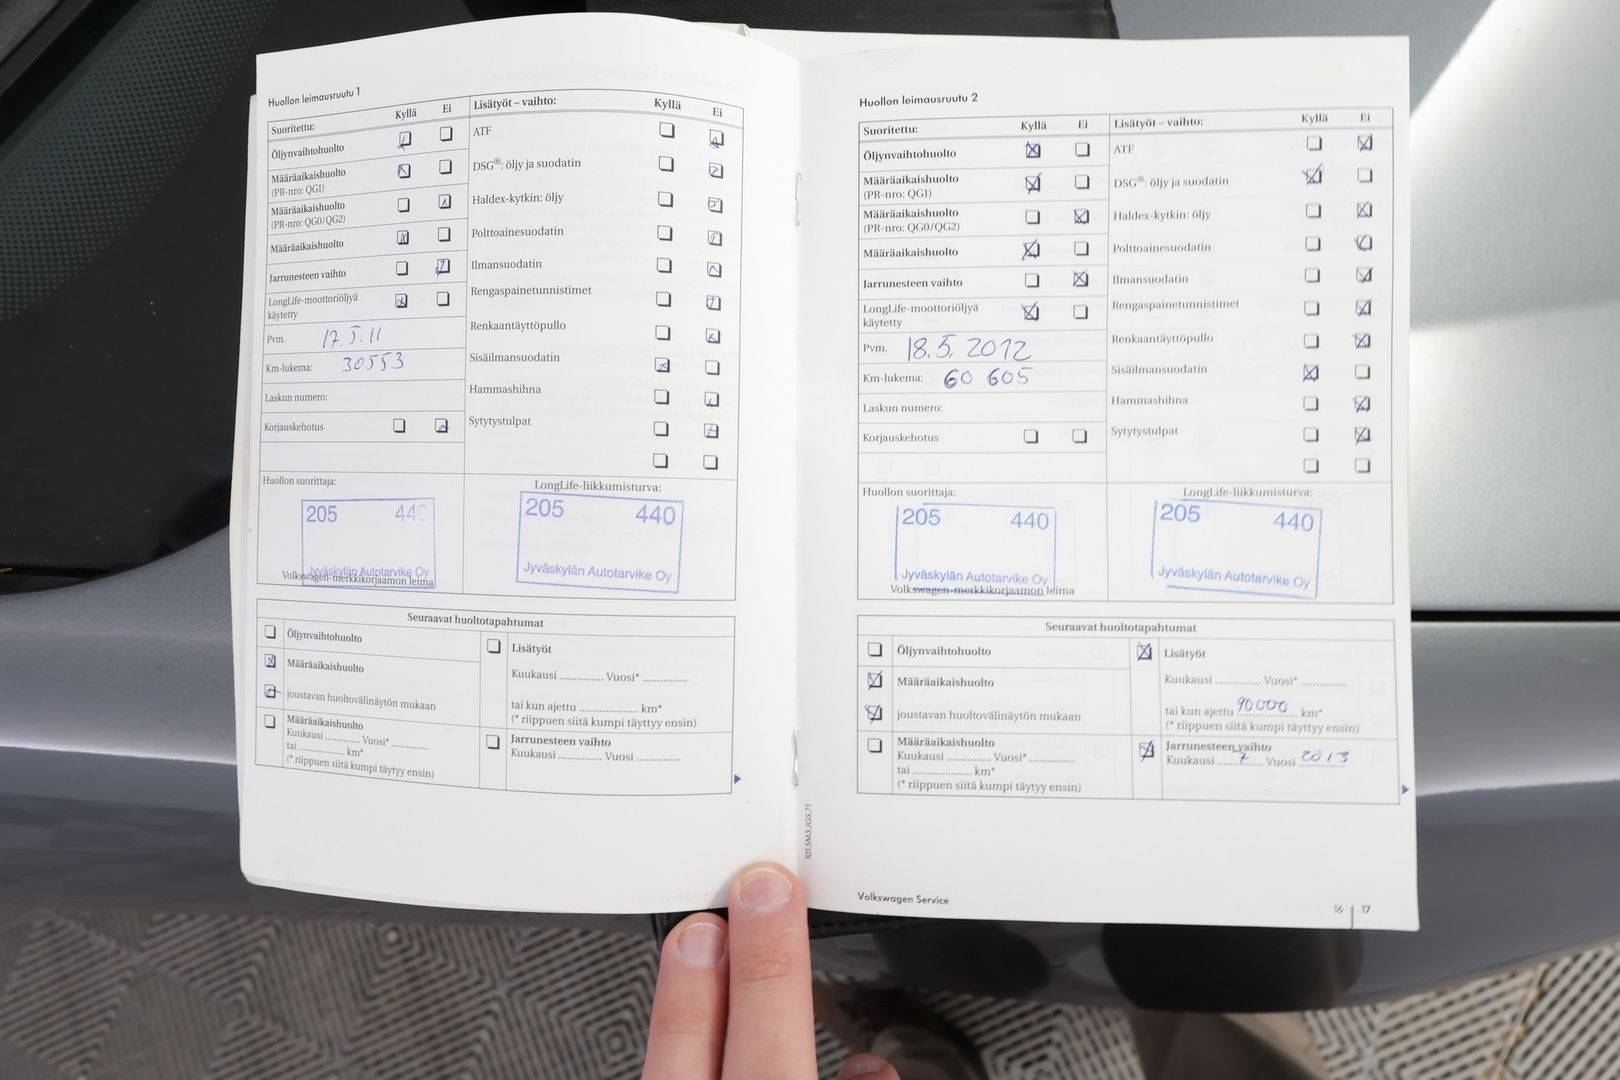 Huollon leimausruutu 1
Suoritettu: Kyllä Ei
Öljynvaihtohuolto
Määräaikaishuolto
(PR-nro: QG1)
Määräaikaishuolto
(PR-nro: QG0/QG2)
Määräaikaishuolto
Jarrunesteen vaihto
LongLife-moottoriöljyä
käytetty
Pvm. 17.5.11
Km-lukema: 30553
Laskun numero:
Korjauskehotus
Lisätyöt – vaihto: Kyllä Ei
ATF
DSG®: öljy ja suodatin
Haldex-kytkin: öljy
Polttoainesuodatin
Ilmansuodatin
Rengaspainetunnistimet
Renkaantäyttöpullo
Sisäilmansuodatin
Hammashihna
Sytytystulpat
Huollon suorittaja:
205 440
Jyväskylän Autotarvike Oy
Volkswagen-merkkikorjaamon leima
LongLife-liikkumisturva:
205 440
Jyväskylän Autotarvike Oy
Seuraavat huoltotapahtumat
Öljynvaihtohuolto
Määräaikaishuolto
joustavan huoltovälinäytön mukaan
Määräaikaishuolto
Kuukausi ............. Vuosi* .............
tai ................ km*
(* riippuen siitä kumpi täytyy ensin)
Lisätyöt
Kuukausi ............. Vuosi* .............
tai kun ajettu ................... km*
(* riippuen siitä kumpi täytyy ensin)
Jarrunesteen vaihto
Kuukausi ............. Vuosi .............
Huollon leimausruutu 2
Suoritettu: Kyllä Ei
Öljynvaihtohuolto
Määräaikaishuolto
(PR-nro: QG1)
Määräaikaishuolto
(PR-nro: QG0/QG2)
Määräaikaishuolto
Jarrunesteen vaihto
LongLife-moottoriöljyä
käytetty
Pvm. 18.5.2012
Km-lukema: 60 605
Laskun numero:
Korjauskehotus
Lisätyöt – vaihto: Kyllä Ei
ATF
DSG®: öljy ja suodatin
Haldex-kytkin: öljy
Polttoainesuodatin
Ilmansuodatin
Rengaspainetunnistimet
Renkaantäyttöpullo
Sisäilmansuodatin
Hammashihna
Sytytystulpat
Huollon suorittaja:
205 440
Jyväskylän Autotarvike Oy
Volkswagen-merkkikorjaamon leima
LongLife-liikkumisturva:
205 440
Jyväskylän Autotarvike Oy
Seuraavat huoltotapahtumat
Öljynvaihtohuolto
Määräaikaishuolto
joustavan huoltovälinäytön mukaan
Määräaikaishuolto
Kuukausi ............. Vuosi* .............
tai ................ km*
(* riippuen siitä kumpi täytyy ensin)
Lisätyöt
Kuukausi ............. Vuosi* .............
tai kun ajettu 90000 km*
(* riippuen siitä kumpi täytyy ensin)
Jarrunesteen vaihto
Kuukausi 7 Vuosi 2013
Volkswagen Service
16 | 17